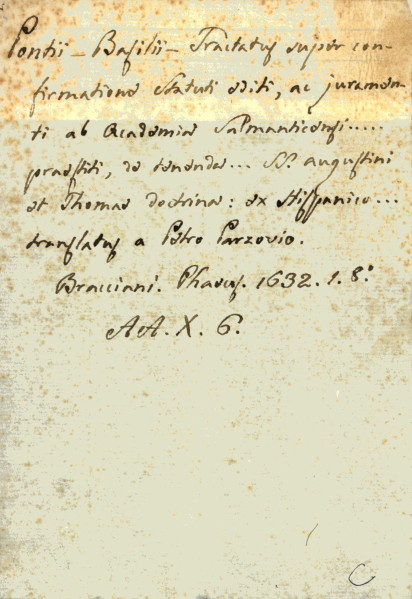 Pontii - Basilii - Tractatus super con-
firmatione statuti editi, ac juramen-
ti ab Academia Salmanticensi.....
praestiti, de tenenda... SS. Augustini
et Thomae doctrina: ex Hispanico...
translatus a Petro Parzovio.
Bracciani. Phaeus. 1632. 1. 8.°
AA. X. 6.
C